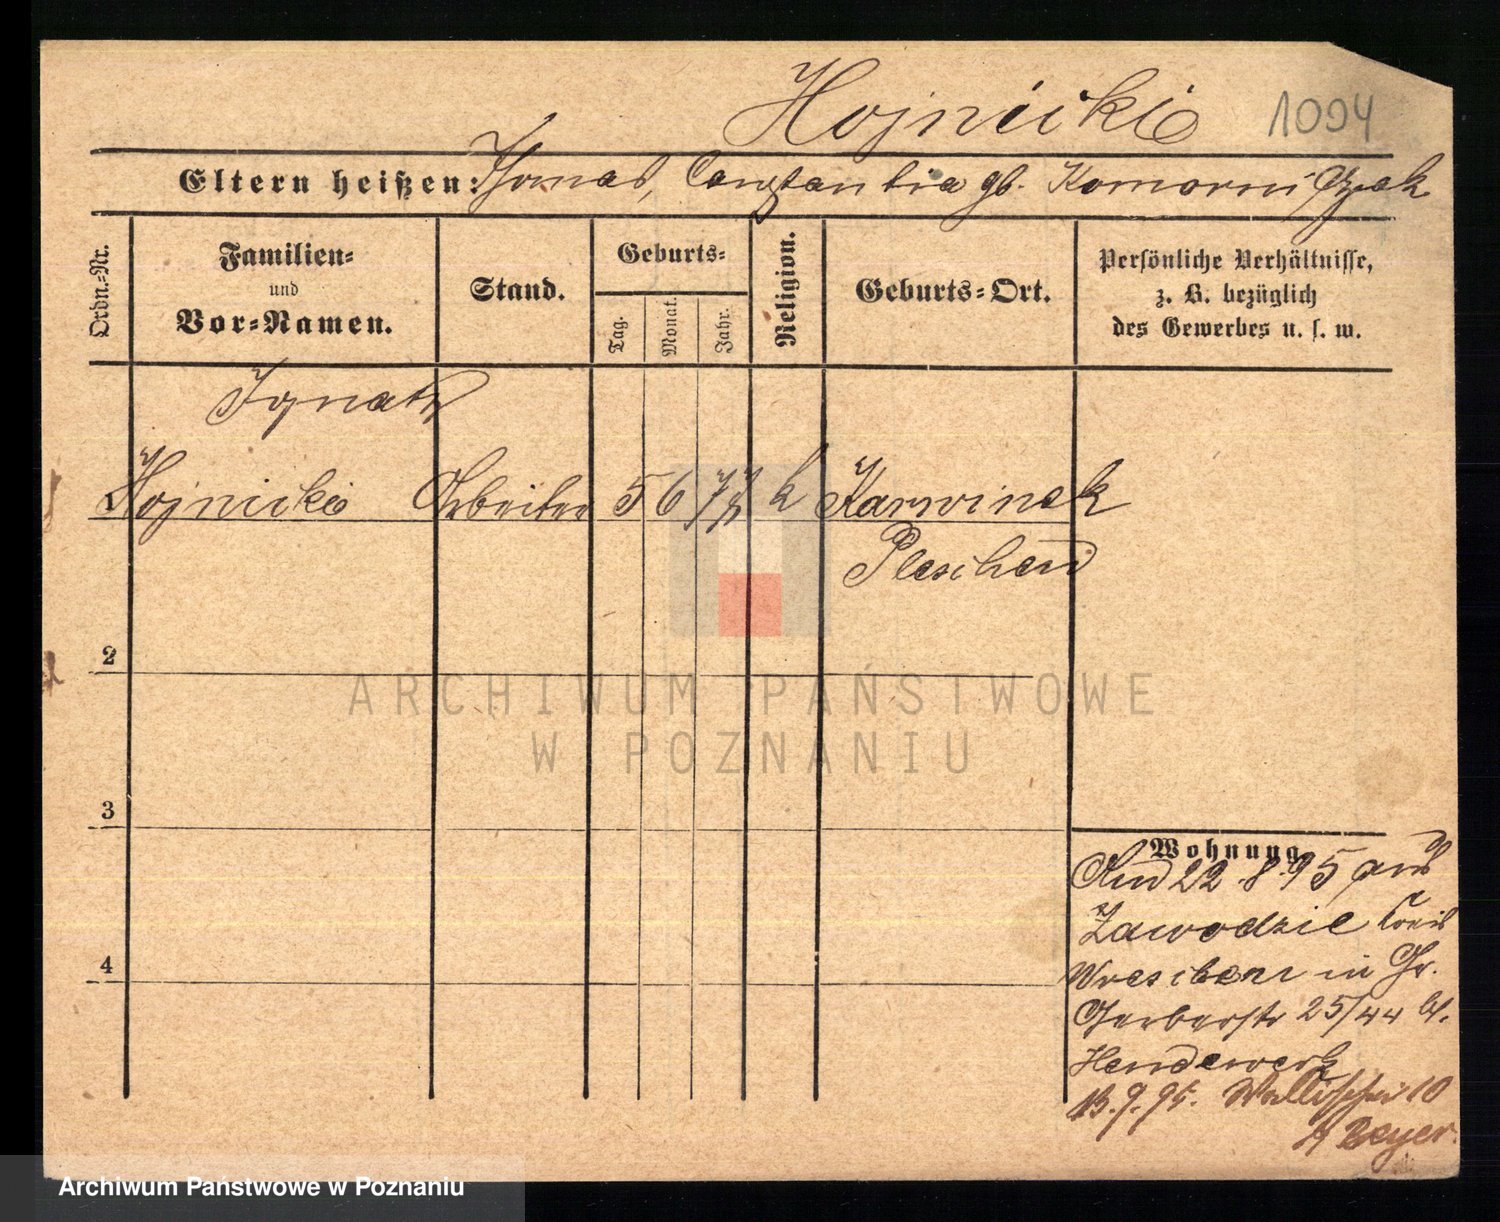 Hojnicki 1094
Eltern heißen: Thomas, Constantia gb. Komorni
Ordn.-Nr.
Familien-
und
Vor-Namen.
Stand.
Geburts-
Tag.
Monat.
Jahr.
Religion.
Geburts-Ort.
Persönliche Verhältnisse,
z. B. bezüglich
des Gewerbes u. s. w.
Ignatz
Hojnicki Arbeiter 5 6 77 k Karwinek
Pleschen
2
3
4
Wohnung
22.8.95 aus
Zawodzie Kreis
Wreschen in Gr.
Gerberstr 25/44 b.
Handewerk
13.9.95. Wallischei 10
Beyer.
ARCHIWUM PAŃSTWOWE
W POZNANIU
Archiwum Państwowe w Poznaniu